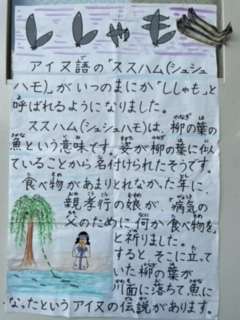 ししゃも
アイヌ語の"ススハム(シュシュ
ハモ)"がいつのまにか"ししゃも"と
呼ばれるようになりました。
ススハム(シュシュハモ)は、柳の葉の
魚という意味です。姿が柳の葉に似
ていることから名付けられたそうです。
食べ物があまりとれなかった年に、
親孝行の娘が、"病気の
父のために何か食べ物を"
と祈りました。
すると、そこに立って
いた柳の葉が
川面に落ちて魚に
なったというアイヌの伝説があります。